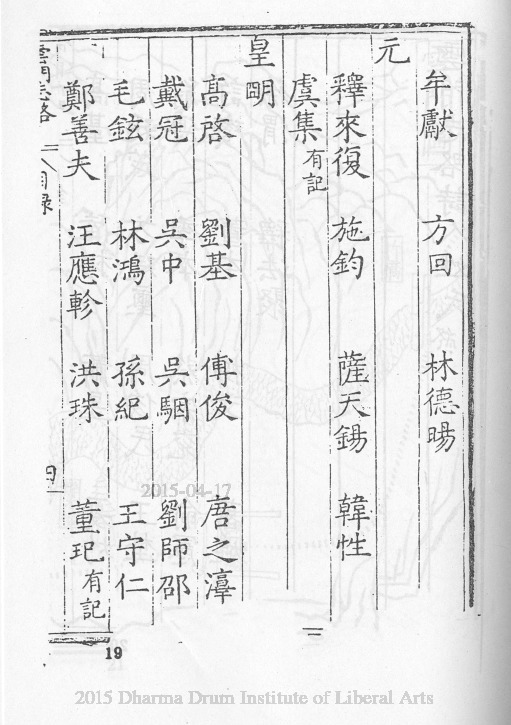 牟獻　方回　林德暘
元
釋來復　施鈞　薩天錫　韓性
虞集有記
皇明
高啓　劉基　傅俊　唐之淳
戴冠　吳中　吳駰　劉師邵
毛鉉　林鴻　孫紀　王守仁
鄭善夫　汪應軫　洪珠　董玘有記
雲門志略　目錄　四
19
2015-04-17
2015 Dharma Drum Institute of Liberal Arts